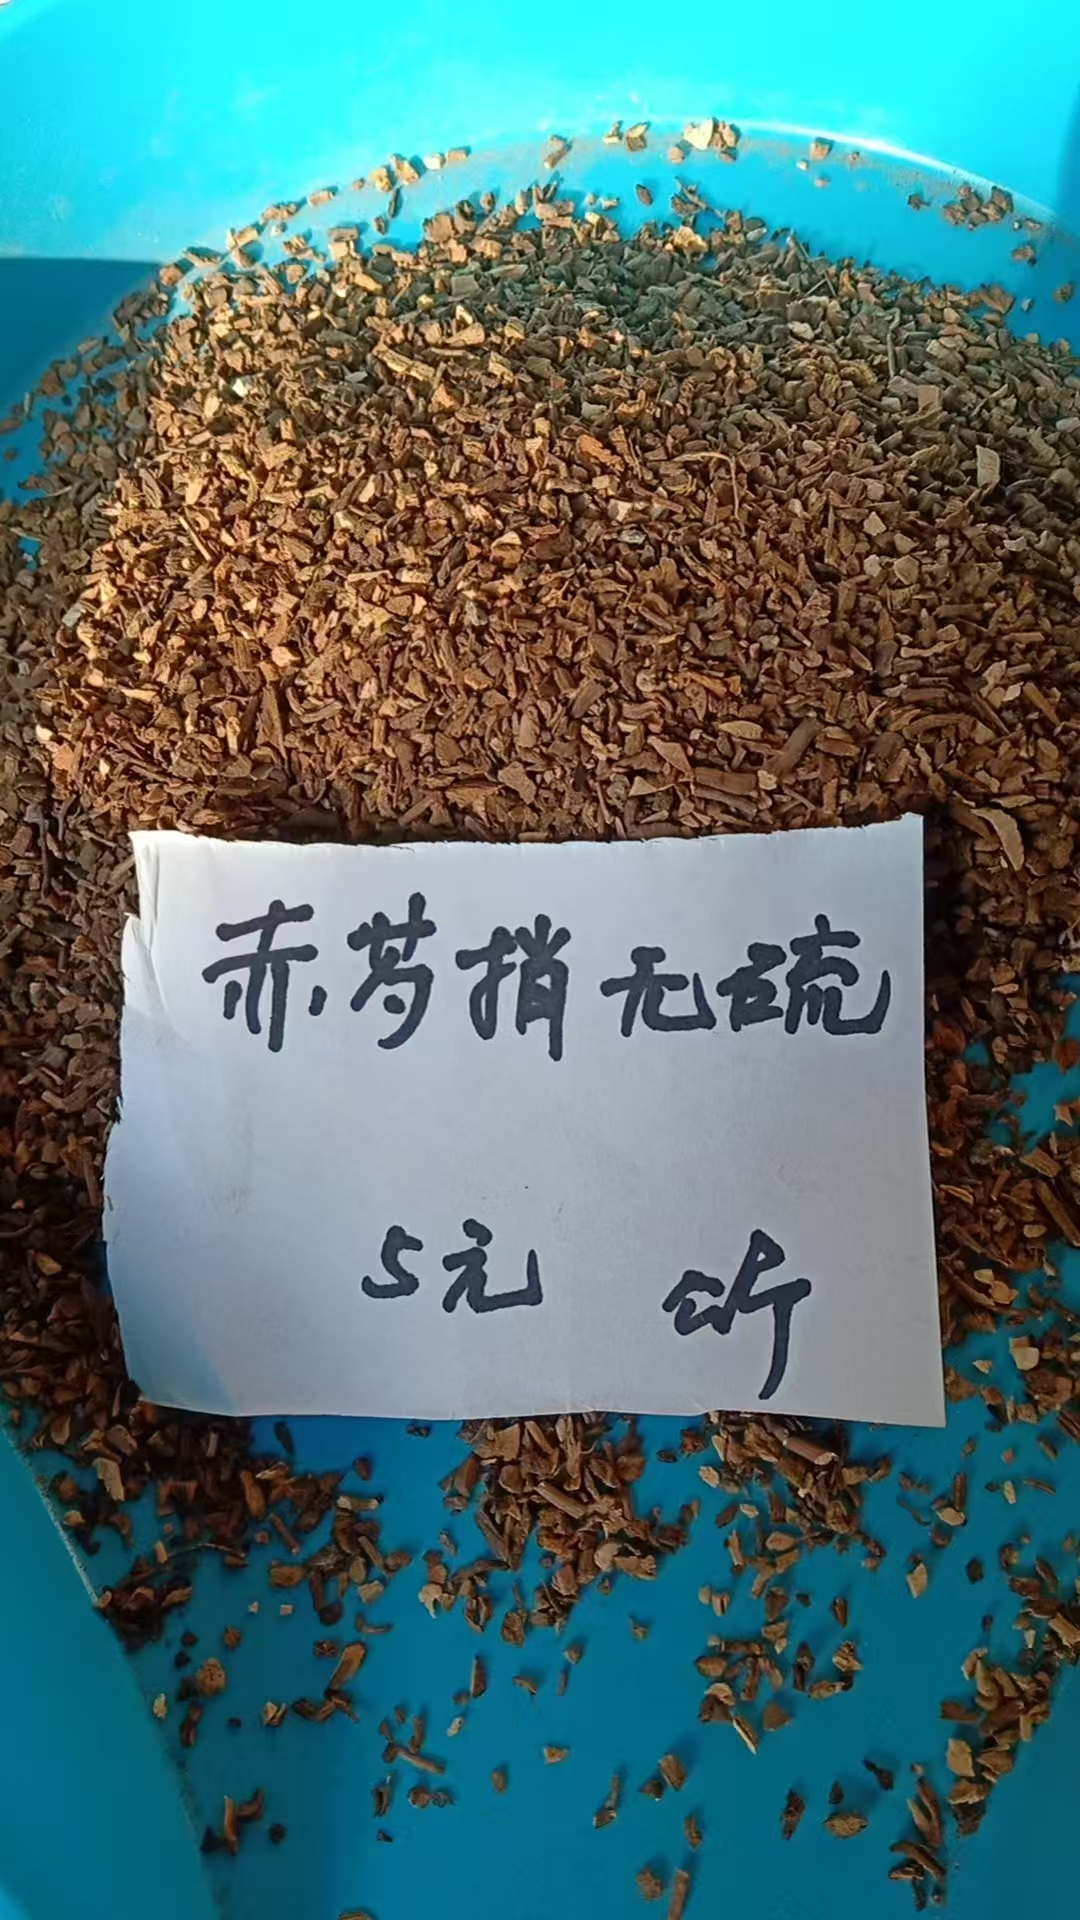 赤芍捎无硫
5元 公斤